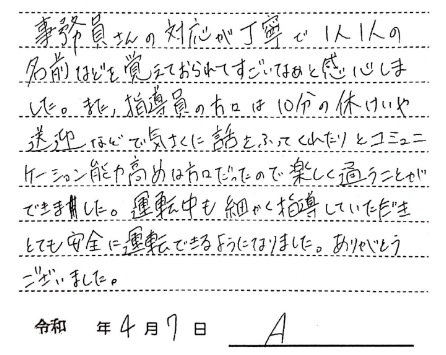 事務員さんの対応が丁寧で1人1人の
名前などを覚えておられてすごいなぁと感心しま
した。また、指導員の方々は10分の休けいや
送迎などで気さくに話をふってくれたりとコミュニ
ケーション能力高めな方々だったので楽しく過うことがで
できました。運転中も細かく指導していただき
とても安全に運転できるようになりました。ありがとう
ございました。
令和 年4月7日 A